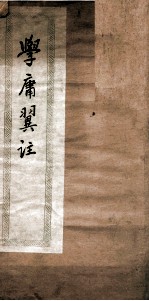 學庸翼註